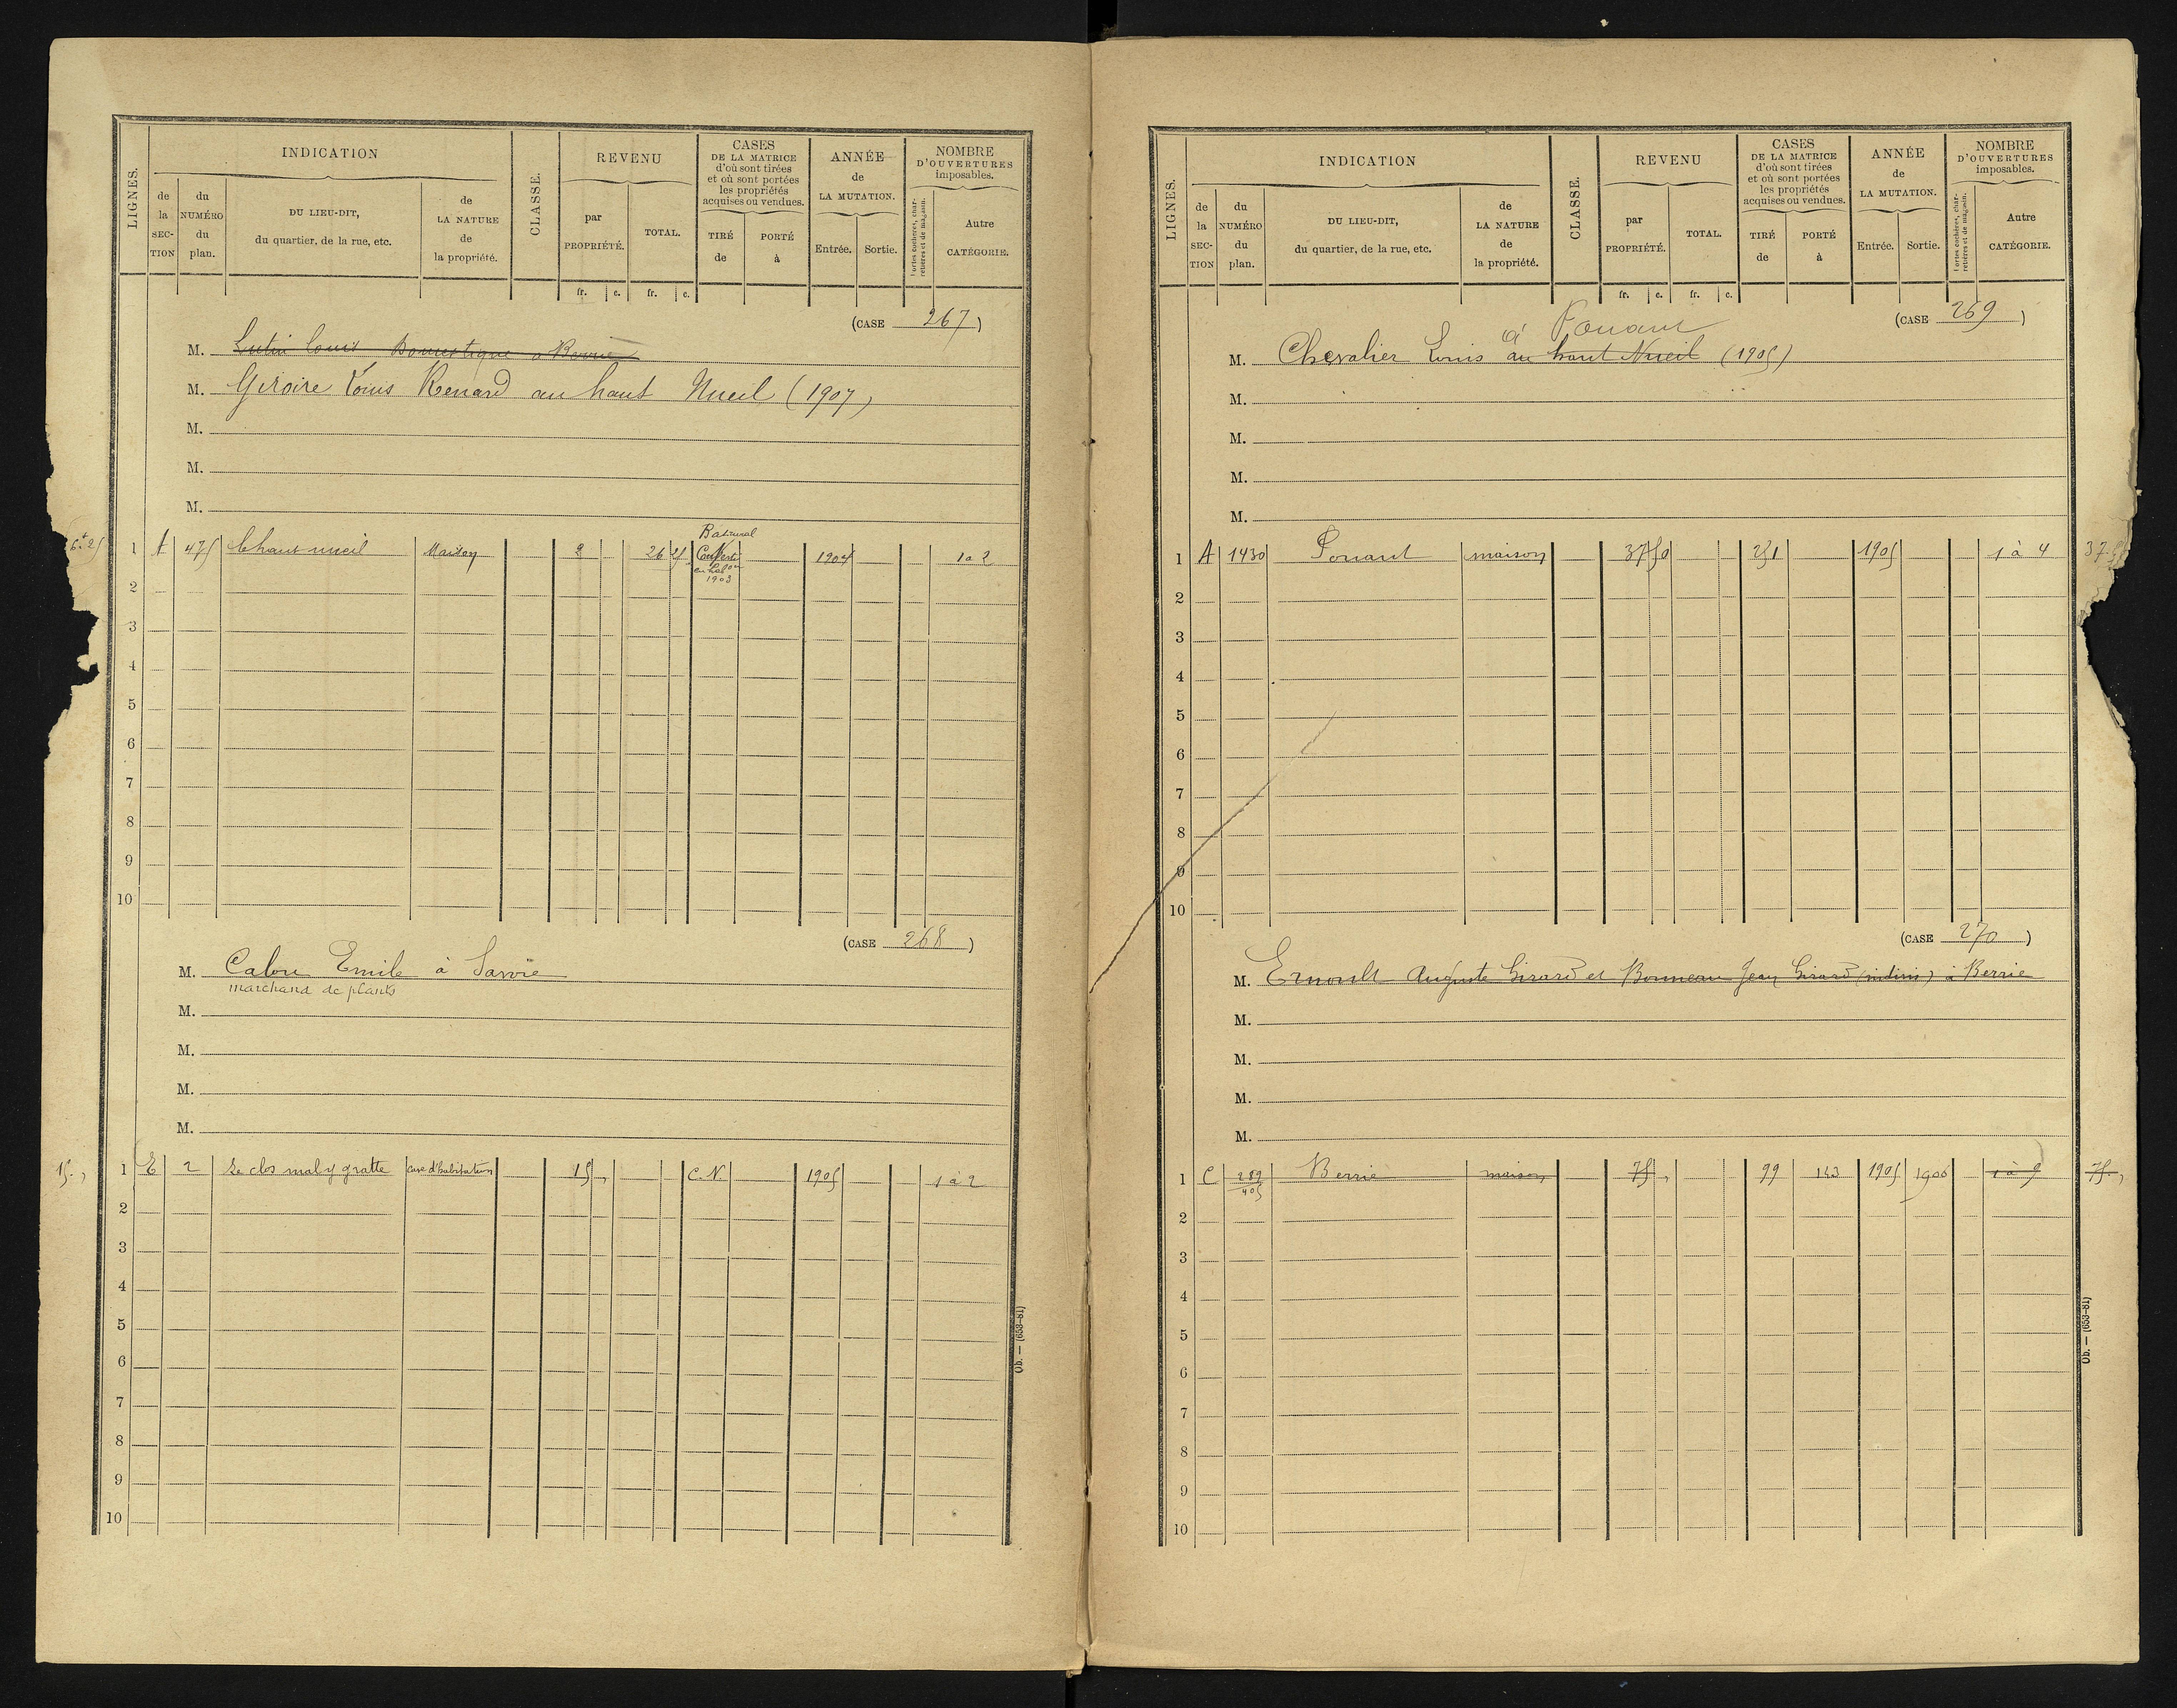 LIGNES.
INDICATION
de la SECTION
du NUMÉRO du plan.
DU LIEU-DIT, du quartier, de la rue, etc.
de LA NATURE de la propriété.
CLASSE.
REVENU
par PROPRIÉTÉ.
TOTAL.
CASES DE LA MATRICE d'où sont tirées et où sont portées les propriétés acquises ou vendues.
TIRÉ de
PORTÉ à
ANNÉE de LA MUTATION.
Entrée.
Sortie.
NOMBRE D'OUVERTURES imposables.
Portes cochères, charretières et de magasin.
Autre CATÉGORIE.
fr. c. fr. c.
(CASE 267)
M. Lutin Louis Domestique à Berrie
M. Giroire Louis Renard au haut Nueil (1907)
M.
M.
M.
1 A 475 le haut nueil Maison 2 26 25 Converti en 1903 1904 1 a 2
2
3
4
5
6
7
8
9
10
(CASE 268)
M. Calou Emile à Savoie
marchand de plants
M.
M.
M.
M.
15. 1 E 2 Le clos mal y gratte cave d'habitation 15 C.N. 1905 1 à 2
2
3
4
5
6
7
8
9
10
Ob. — (653-81)
LIGNES.
INDICATION
de la SECTION
du NUMÉRO du plan.
DU LIEU-DIT, du quartier, de la rue, etc.
de LA NATURE de la propriété.
CLASSE.
REVENU
par PROPRIÉTÉ.
TOTAL.
CASES DE LA MATRICE d'où sont tirées et où sont portées les propriétés acquises ou vendues.
TIRÉ de
PORTÉ à
ANNÉE de LA MUTATION.
Entrée.
Sortie.
NOMBRE D'OUVERTURES imposables.
Portes cochères, charretières et de magasin.
Autre CATÉGORIE.
fr. c. fr. c.
(CASE 269)
à Pouant
M. Chevalier Louis au haut Nueil (1905)
M.
M.
M.
M.
1 A 1430 Pouant maison 37 50 251 1905 1 à 4
2
3
4
5
6
7
8
9
10
(CASE 270)
M. Ernoult Auguste Girard et Bonneau Jean Girard (indivis) à Berrie
M.
M.
M.
M.
1 C 289 405 Berrie maison 75 99 143 1905 1906 1 à 9 75.
2
3
4
5
6
7
8
9
10
Ob. — (653-81)